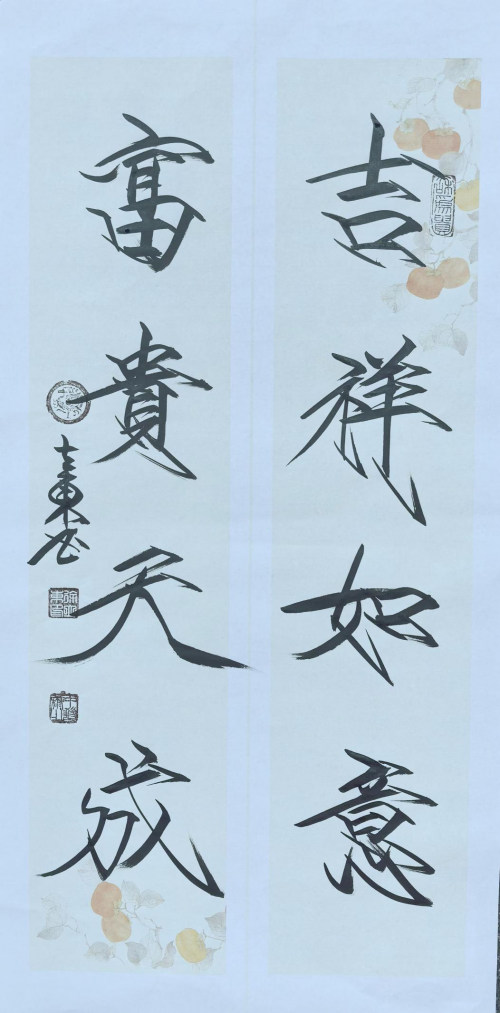 吉祥如意
富貴天成